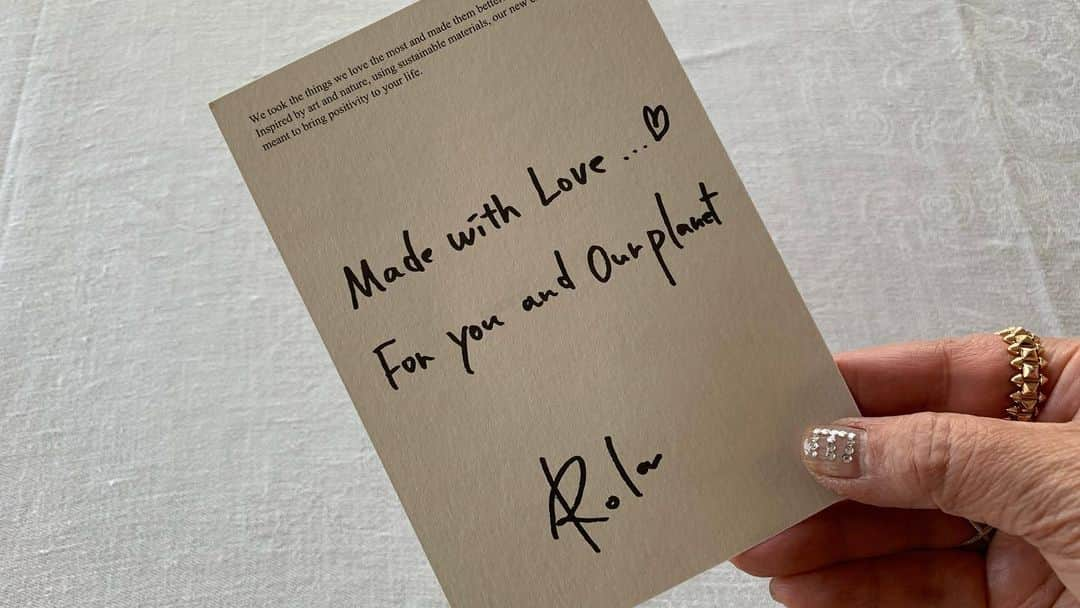 We took the things we love the most and made them better.
Inspired by art and nature, using sustainable materials, our new
meant to bring positivity to your life.
Made with Love ...♡
For you and Our planet
Rola